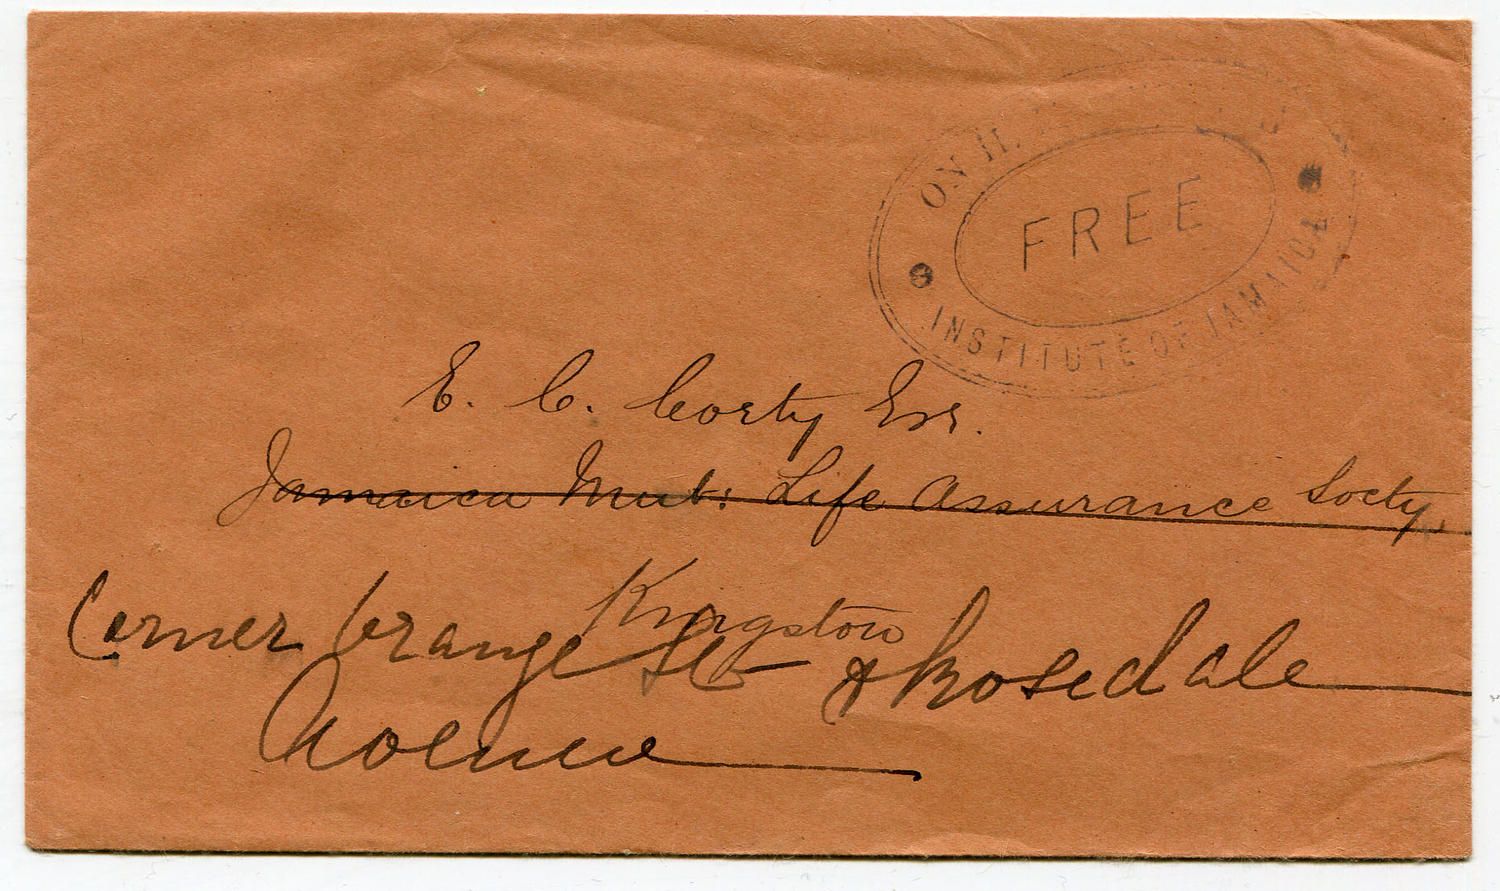 ON H.
FREE
INSTITUTE OF JAMAICA
E. C. Corty Esr.
Jamaica Mut: Life Assurance Socty,
Kingston
Corner Orange St & Rosedale
Avenue